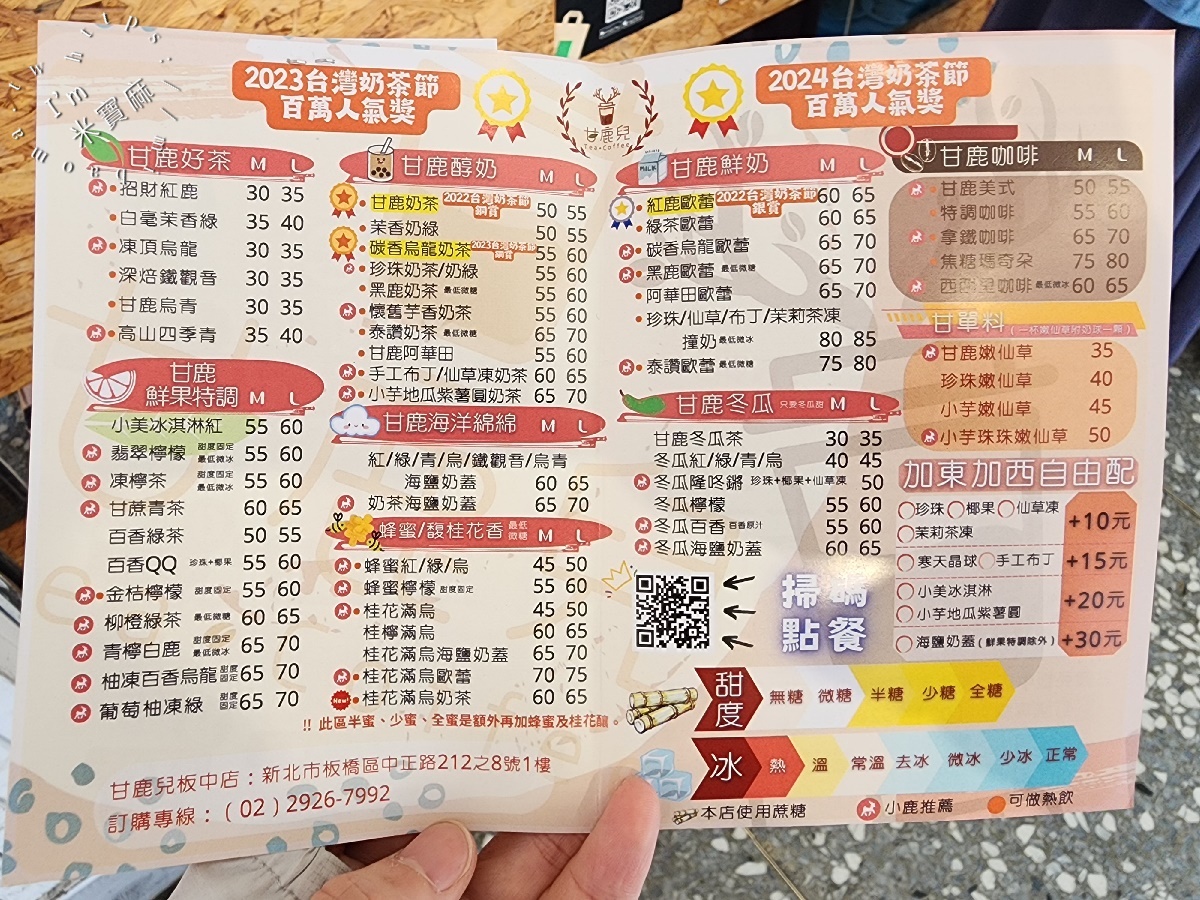 I'm 米寶麻
2023台灣奶茶節
百萬人氣獎
甘鹿兒
Tea•Coffee
2024台灣奶茶節
百萬人氣獎
甘鹿好茶 M L
招財紅鹿 30 35
白毫茉香綠 35 40
凍頂烏龍 30 35
深焙鐵觀音 30 35
甘鹿烏青 30 35
高山四季青 35 40
甘鹿
鮮果特調 M L
小美冰淇淋紅 55 60
翡翠檸檬 甜度固定 最低微冰 55 60
凍檸茶 甜度固定 最低微冰 55 60
甘蔗青茶 60 60
百香綠茶 50 55
百香QQ 珍珠+椰果 55 60
金桔檸檬 甜度固定 55 60
柳橙綠茶 最低微糖 60 65
青檸白鹿 甜度固定 最低微糖 65 70
柚凍百香烏龍 甜度固定 65 70
葡萄柚凍綠 甜度固定 65 70
甘鹿醇奶 M L
甘鹿奶茶 2022台灣奶茶節 銅賞 50 55
茉香奶綠 50 55
碳香烏龍奶茶 2023台灣奶茶節 銅賞 55 60
珍珠奶茶/奶綠 55 60
黑鹿奶茶 最低微糖 55 60
懷舊芋香奶茶 55 60
泰讚奶茶 最低微糖 65 70
甘鹿阿華田 55 60
手工布丁/仙草凍奶茶 60 65
小芋地瓜紫薯圓奶茶 65 70
甘鹿海洋綿綿 M L
紅/綠/青/烏/鐵觀音/烏青
海鹽奶蓋 60 65
奶茶海鹽奶蓋 65 70
蜂蜜/馥桂花香 最低微糖 M L
蜂蜜紅/綠/烏 45 50
蜂蜜檸檬 甜度固定 55 60
桂花滿烏 45 50
桂檸滿烏 60 65
桂花滿烏海鹽奶蓋 65 70
桂花滿烏歐蕾 70 75
New! 桂花滿烏奶茶 60 65
!! 此區半蜜、少蜜、全蜜是額外再加蜂蜜及桂花釀。
甘鹿鮮奶 M L
紅鹿歐蕾 2022台灣奶茶節 銀賞 60 65
綠茶歐蕾 60 65
碳香烏龍歐蕾 65 70
黑鹿歐蕾 最低微糖 65 70
阿華田歐蕾 65 70
珍珠/仙草/布丁/茉莉茶凍
撞奶 最低微冰 80 85
泰讚歐蕾 最低微糖 75 80
甘鹿冬瓜 只要冬瓜甜 M L
甘鹿冬瓜茶 30 35
冬瓜紅/綠/青/烏 40 45
冬瓜隆咚鏘 珍珠+椰果+仙草凍 50
冬瓜檸檬 55 60
冬瓜百香 百香原汁 55 60
冬瓜海鹽奶蓋 60 65
掃碼
點餐
甘鹿咖啡 M L
甘鹿美式 50 55
特調咖啡 55 60
拿鐵咖啡 65 70
焦糖瑪奇朵 75 80
西西里咖啡 最低微冰 60 65
甘單料 (一杯嫩仙草附奶球一顆)
甘鹿嫩仙草 35
珍珠嫩仙草 40
小芋嫩仙草 45
小芋珠珠嫩仙草 50
加東加西自由配
珍珠 椰果 仙草凍
茉莉茶凍 +10元
寒天晶球 手工布丁 +15元
小美冰淇淋
小芋地瓜紫薯圓 +20元
海鹽奶蓋(鮮果特調除外) +30元
甜度 無糖 微糖 半糖 少糖 全糖
冰 熱 溫 常溫 去冰 微冰 少冰 正常
本店使用蔗糖 小鹿推薦 可做熱飲
甘鹿兒板中店：新北市板橋區中正路212之8號1樓
訂購專線：(02)2926-7992